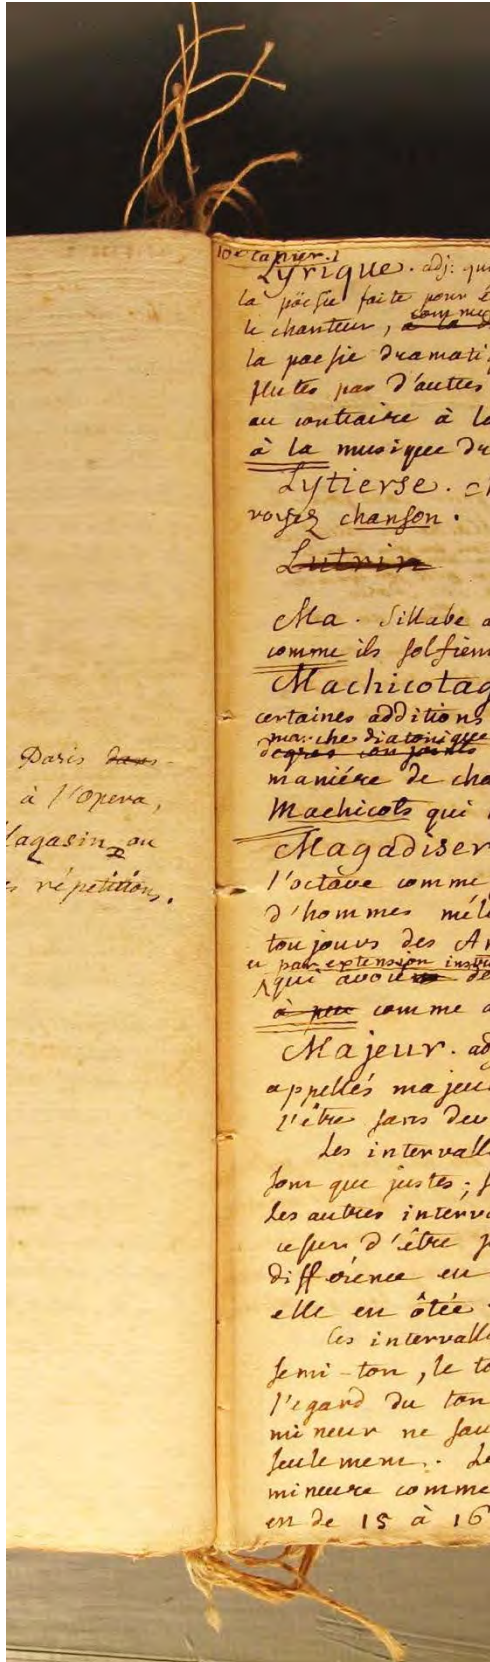 Paris dans
à l'Opera,
Magasin ou
es répétitions.
10e cahier.
Lyrique. adj: qui
la pöesie faite pour ê
le chanteur,
la poesie dramatiq
flutes par d'autres
au contraire à la
à la musique dr
Lytierse. ch
voyez chanson.
Lutrin
Ma. Sillabe a
comme ils solfient
Machicotag
certaines additions
marche diatonique
degres conjoints
maniére de cha
Machicots qui
Magadiser
l'octave comme
d'hommes mêl
toujours des An
et par extension instru
qui avoient de
à peu comme d
Majeur. adj
appellés majeu
l'être sans deve
Les intervall
sont que justes; s
Les autres interva
cesser d'être j
différence en
elle en ôtée
Ces intervalle
semi-ton, le to
l'egard du ton
mineur ne sau
seulement. Le
mineure comme
en de 15 à 16